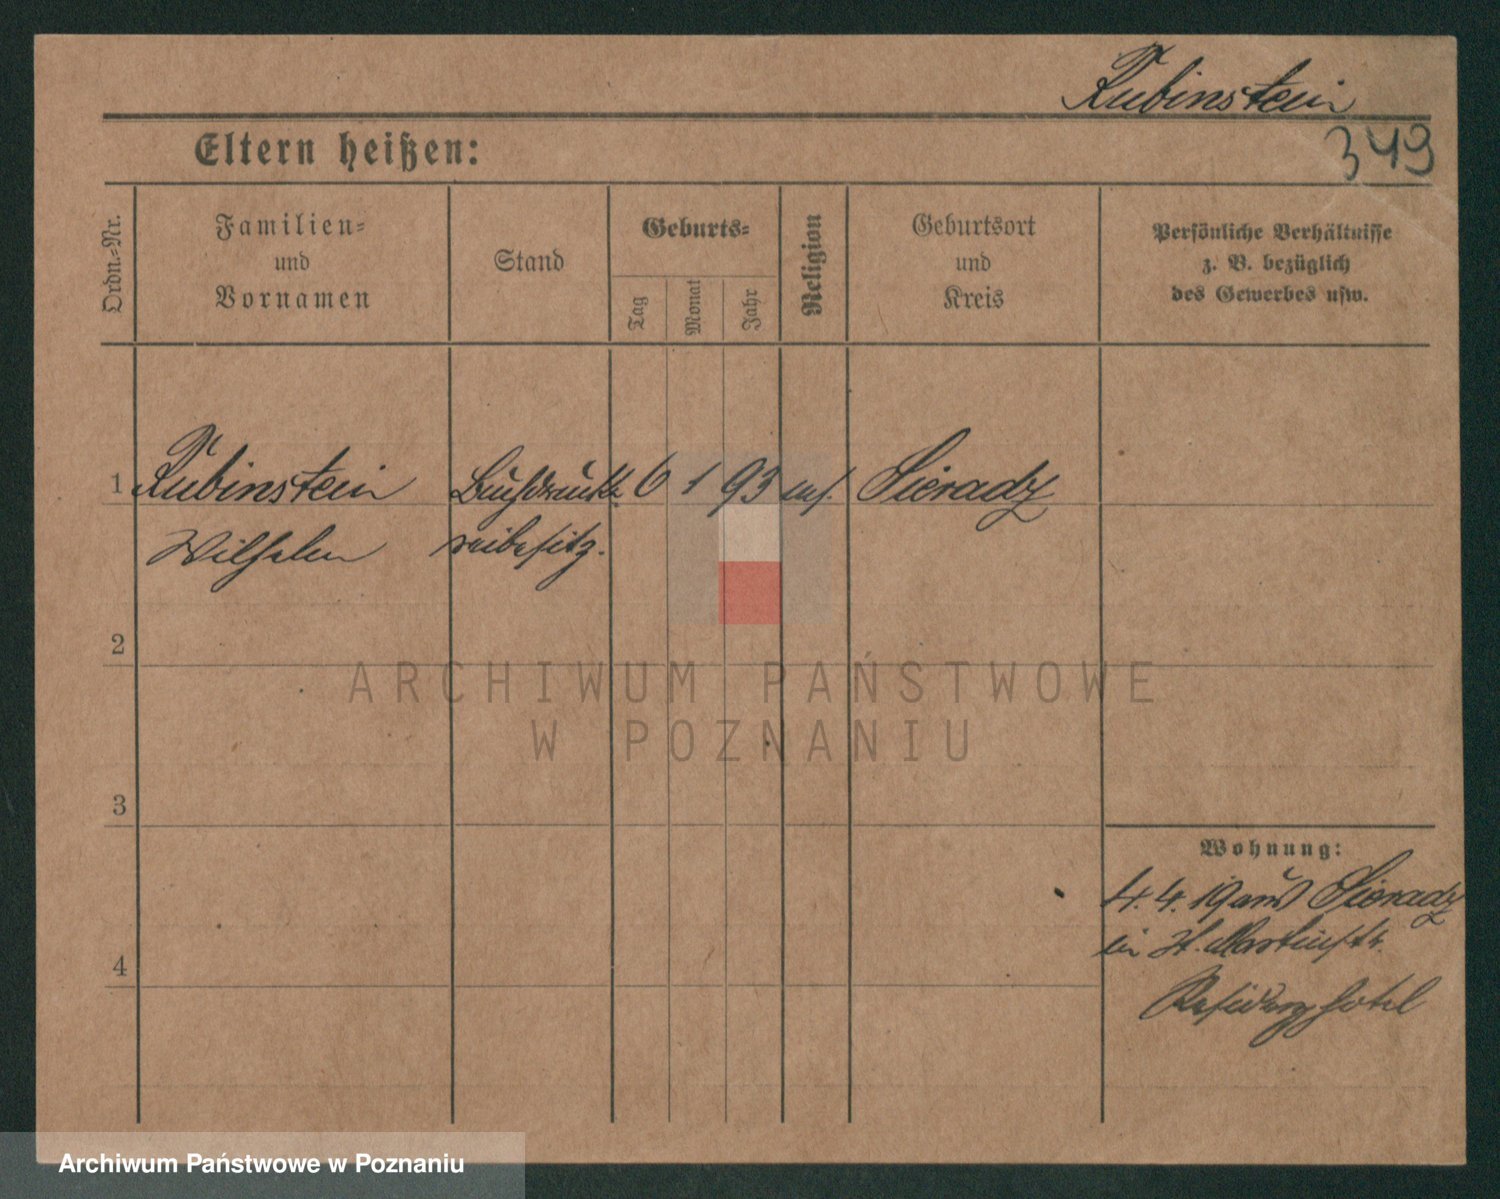 Rubinstein
349
Eltern heißen:
Ordn.-Nr.
Familien-
und
Vornamen
Stand
Geburts-
Tag
Monat
Jahr
Religion
Geburtsort
und
Kreis
Persönliche Verhältnisse
z. B. bezüglich
des Gewerbes usw.
1 Rubinstein Buchdrucke 6 1 93 Sieradz
Wilhelm reibesitz.
2
3
4
Wohnung:
4. 4. 19 aus Sieradz
in St. Martinstr.
Residenzhotel
ARCHIWUM PAŃSTWOWE
W POZNANIU
Archiwum Państwowe w Poznaniu